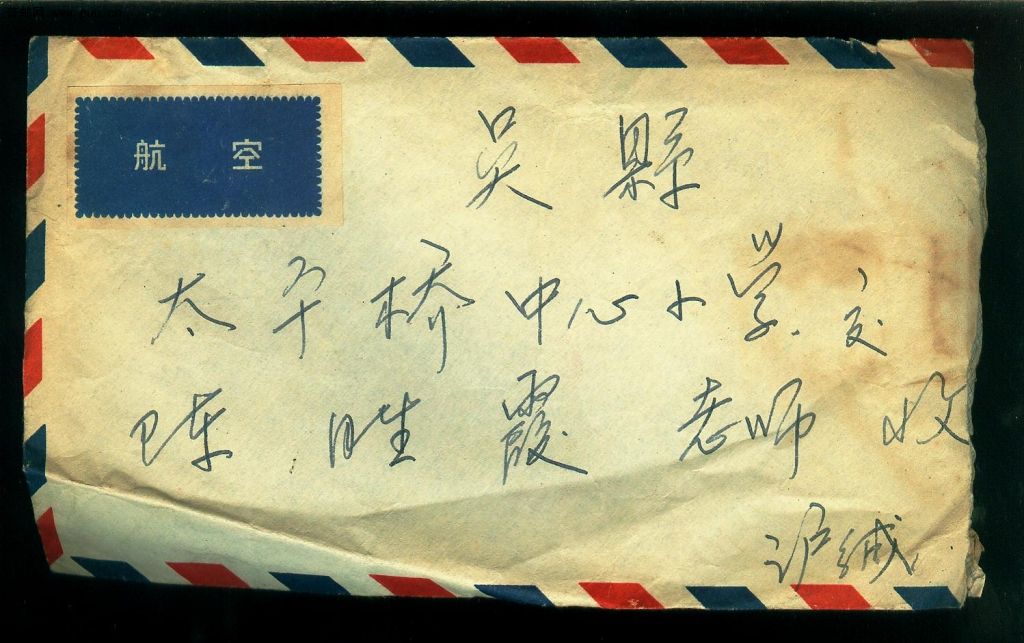 航空
吴縣
太平桥中心小学交
陈胜霞老师收
沪缄